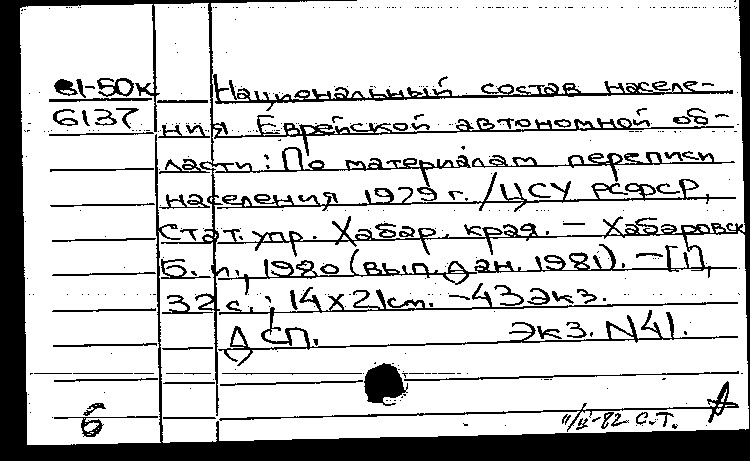 81-50к Национальный состав населе-
6137 ния Еврейской автономной об-
ласти: По материалам переписи
населения 1979 г. / ЦСУ РСФСР,
Стат. упр. Хабар. края. – Хабаровск
Б. и., 1980 (вып. дан. 1981). – [1],
32 с.; 14 х 21 см. – 43 экз.
ДСП. Экз. N 41.
6 II-82 С.Т.